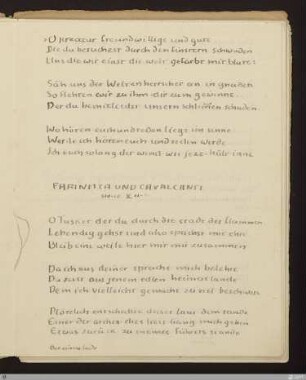 O kreatur freundwillige und gute
Die du besuchest durch den finstern schwaden
Uns die wir einst die welt gefärbt mit blute:
Säh uns der Weltenherrscher an in gnaden
So flehten wir zu ihm dir zum gewinne
Der du bemitleidest unsern schlimmen schaden.
Wo hören euch und reden liegt im sinne
Werde ich hören euch und reden werde
Ich euch solang der wind wie jezt hält inne
FARINATA UND CAVALCANTE
O Tusker der du durch die stadt der flammen
Lebendig gehst und also sprichst mit
Bleib eine weile hier mit mir zusammen
Da ich aus deiner sprache mich belehre
Du seist aus jenem edlen heimatlande
Dem ich vielleicht gemacht zu viel
Plötzlich entschlüpfte dieser laut dem rande
Einer der archen dass ich bang mich
Etwas zurück zu meines führers